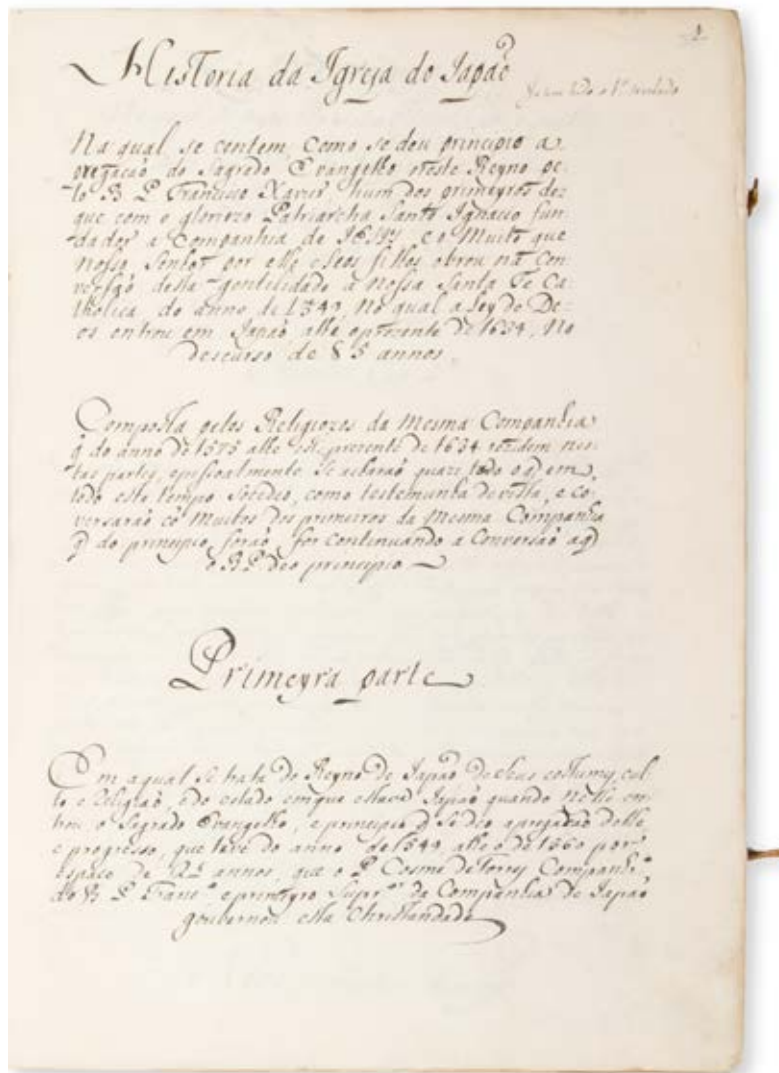 1
Historia da Igreja do Japaõ
Na qual se contem, Como se deu principio a
pregaçaõ do Sagrado Evangelho neste Reyno pe-
lo B. P. Francisco Xavier, hum dos primeyros dez
que com o gloriozo Patriarcha Santo Ignacio fun-
dador a Companhia de e o Muito que
Nosso Senhor por elle e seos filhos obrou na Con-
versaõ desta gentilidade a Nossa Santa Fe Ca-
tholica do anno de 1549, No qual a Ley de De-
os entrou em Japaõ athe o prezente de 1634, No
descurso de 85 annos.
Composta pelos Religiozos da Mesma Companhia
q̃ do anno de 1575 athe este prezente de 1634 rezidem nes-
tas partes, se acharaõ quazi todo o q̃ em
todo este tempo Socedeo, como testemunha de vista, e co-
versaraõ cõ Muitos dos primeiros da Mesma Companhia
q̃ do principio foraõ continuando a Conversaõ a q̃
o B. P. deo principio
Primeyra parte
Em a qual Se trata do Reyno de Japaõ de Seus costumes, cul-
to e Religiaõ, e do estado em que estava Japaõ quando nelle en-
trou o Sagrado Evangelho, e principio q̃ Se deo a pregaçaõ delle
e progresso, que teve do anno de 1549 athe o de por
espaco de annos, que o P. Cosme de Torres Companhr.º
do B. P. Franc.º e primeyro Supr.ºʳ da Companhia de Japaõ
gouvernou esta Christandade